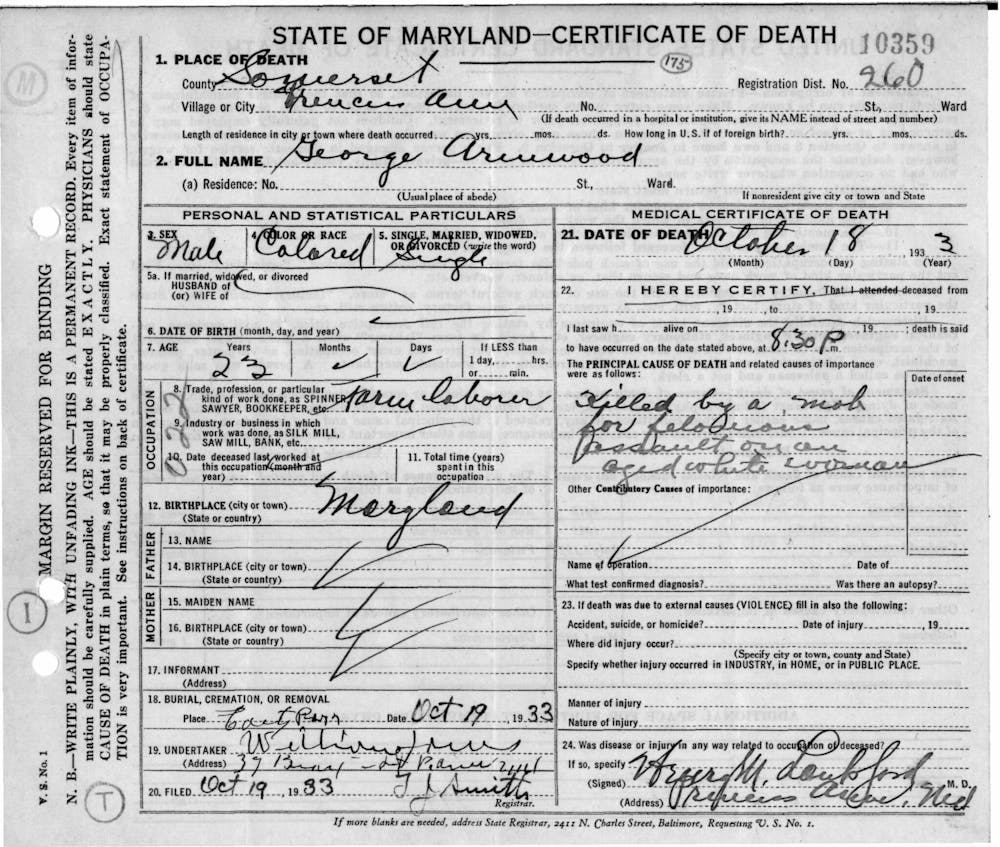 STATE OF MARYLAND—CERTIFICATE OF DEATH
10359
1. PLACE OF DEATH
175
County Somerset
Registration Dist. No. 260
Village or City Princess Ann No. St., Ward
(If death occurred in a hospital or institution, give its NAME instead of street and number)
Length of residence in city or town where death occurred yrs. mos. ds. How long in U.S. if of foreign birth? yrs. mos. ds.
2. FULL NAME George Armwood
(a) Residence: No. St., Ward.
(Usual place of abode) If nonresident give city or town and State
PERSONAL AND STATISTICAL PARTICULARS
3. SEX 4. COLOR OR RACE 5. SINGLE, MARRIED, WIDOWED,
OR DIVORCED (write the word)
Male Colored Single
5a. If married, widowed, or divorced
HUSBAND of
(or) WIFE of
6. DATE OF BIRTH (month, day, and year)
7. AGE Years Months Days If LESS than
1 day, hrs.
or min.
23
OCCUPATION
8. Trade, profession, or particular
kind of work done, as SPINNER,
SAWYER, BOOKKEEPER, etc. Farm laborer
9. Industry or business in which
work was done, as SILK MILL,
SAW MILL, BANK, etc.
10. Date deceased last worked at
this occupation (month and
year)
11. Total time (years)
spent in this
occupation
12. BIRTHPLACE (city or town) Maryland
(State or country)
FATHER
13. NAME
14. BIRTHPLACE (city or town)
(State or country)
MOTHER
15. MAIDEN NAME
16. BIRTHPLACE (city or town)
(State or country)
17. INFORMANT
(Address)
18. BURIAL, CREMATION, OR REMOVAL
Place Date Oct 19, 1933
19. UNDERTAKER
(Address)
20. FILED Oct 19, 1933 T J Smith
Registrar.
MEDICAL CERTIFICATE OF DEATH
21. DATE OF DEATH October 18 1933
(Month) (Day) (Year)
22. I HEREBY CERTIFY, That I attended deceased from
, 19 , to , 19 .
I last saw h alive on , 19 ; death is said
to have occurred on the date stated above, at 8:30 P.m.
The PRINCIPAL CAUSE OF DEATH and related causes of importance
were as follows:
Date of onset
Killed by a mob
for felonious
assault on an
aged white woman
Other Contributory Causes of importance:
Name of operation Date of
What test confirmed diagnosis? Was there an autopsy?
23. If death was due to external causes (VIOLENCE) fill in also the following:
Accident, suicide, or homicide? Date of injury , 19
Where did injury occur?
(Specify city or town, county and State)
Specify whether injury occurred in INDUSTRY, in HOME, or in PUBLIC PLACE.
Manner of injury
Nature of injury
24. Was disease or injury in any way related to occupation of deceased?
If so, specify
(Signed) Henry M. Lankford M. D.
(Address) Princess Anne, Md
If more blanks are needed, address State Registrar, 2411 N. Charles Street, Baltimore, Requesting V. S. No. 1.
V. S. No. 1
MARGIN RESERVED FOR BINDING
N. B.—WRITE PLAINLY, WITH UNFADING INK—THIS IS A PERMANENT RECORD. Every item of infor-
mation should be carefully supplied. AGE should be stated EXACTLY. PHYSICIANS should state
CAUSE OF DEATH in plain terms, so that it may be properly classified. Exact statement of OCCUPA-
TION is very important. See instructions on back of certificate.
M
I
T